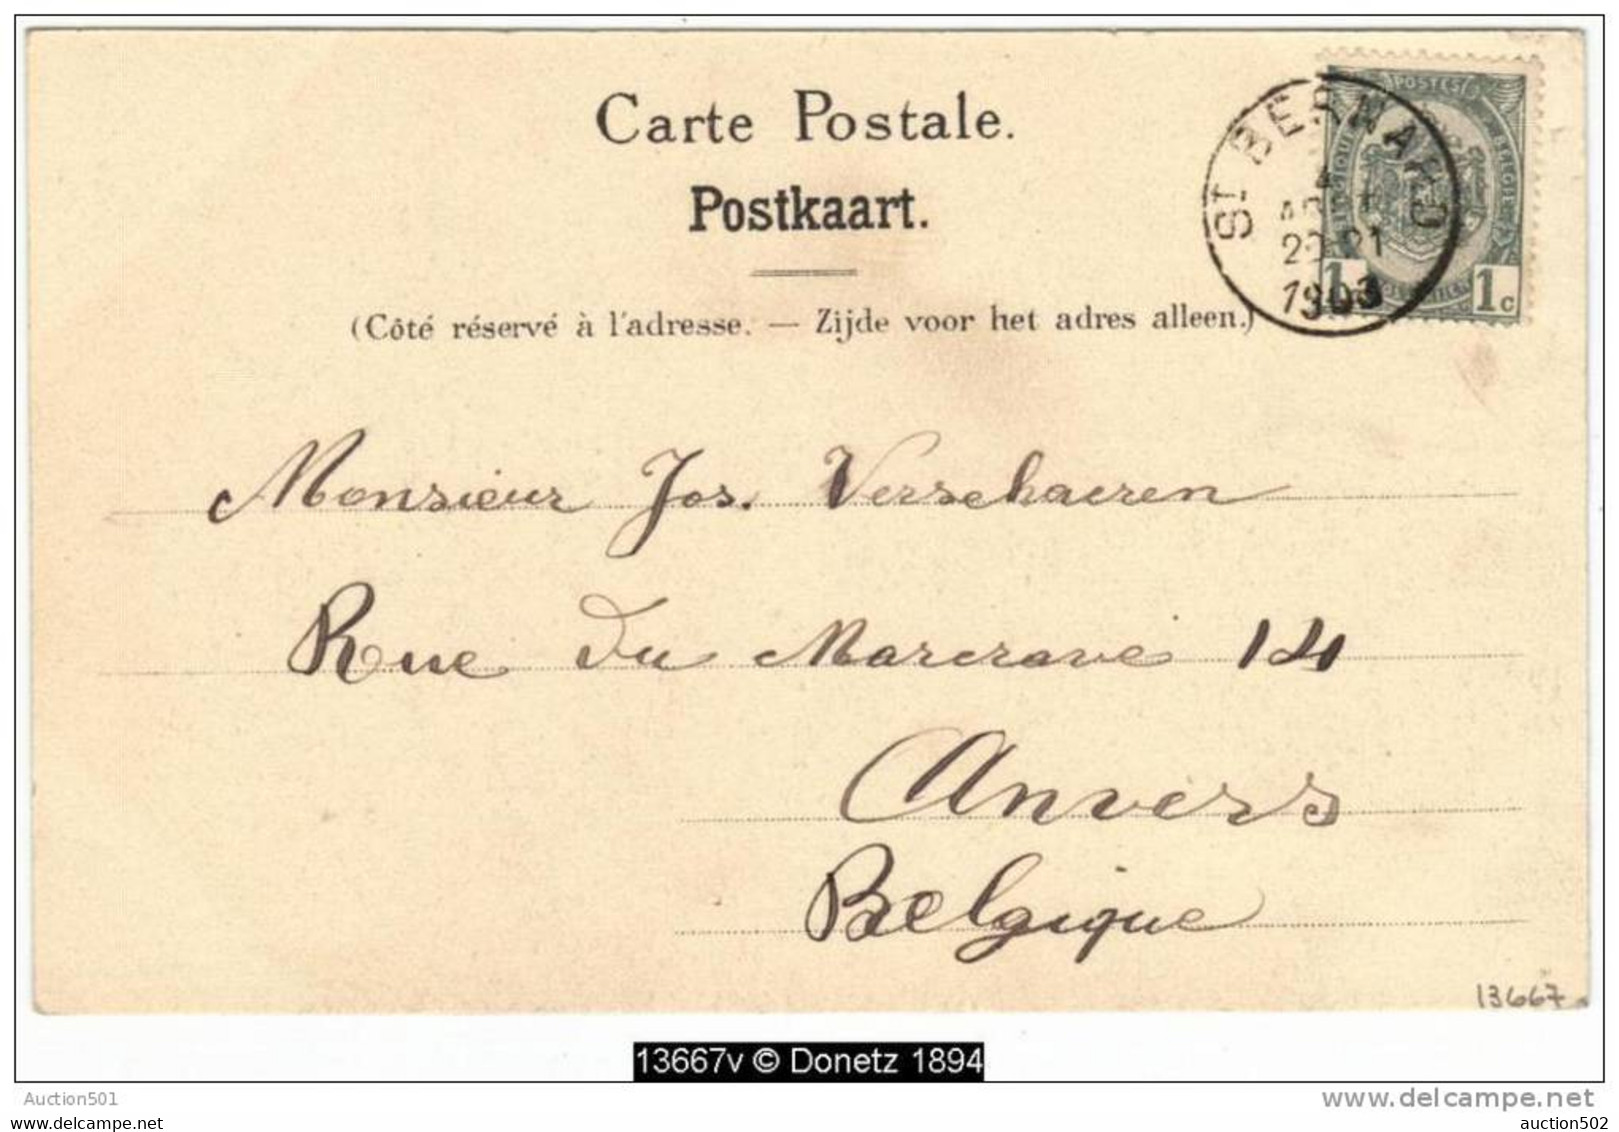 Carte Postale.
Postkaart.
(Côté réservé à l'adresse. — Zijde voor het adres alleen.)
POSTES
BELGIQUE
BELGIE
1 1c
ST BERNARD
4
20-21
1903
Monsieur Jos. Verschaeren
Rue du Marcrave 14
Anvers
Belgique
13667
13667v © Donetz 1894
Auction501
www.delcampe.net
auction502
auction502